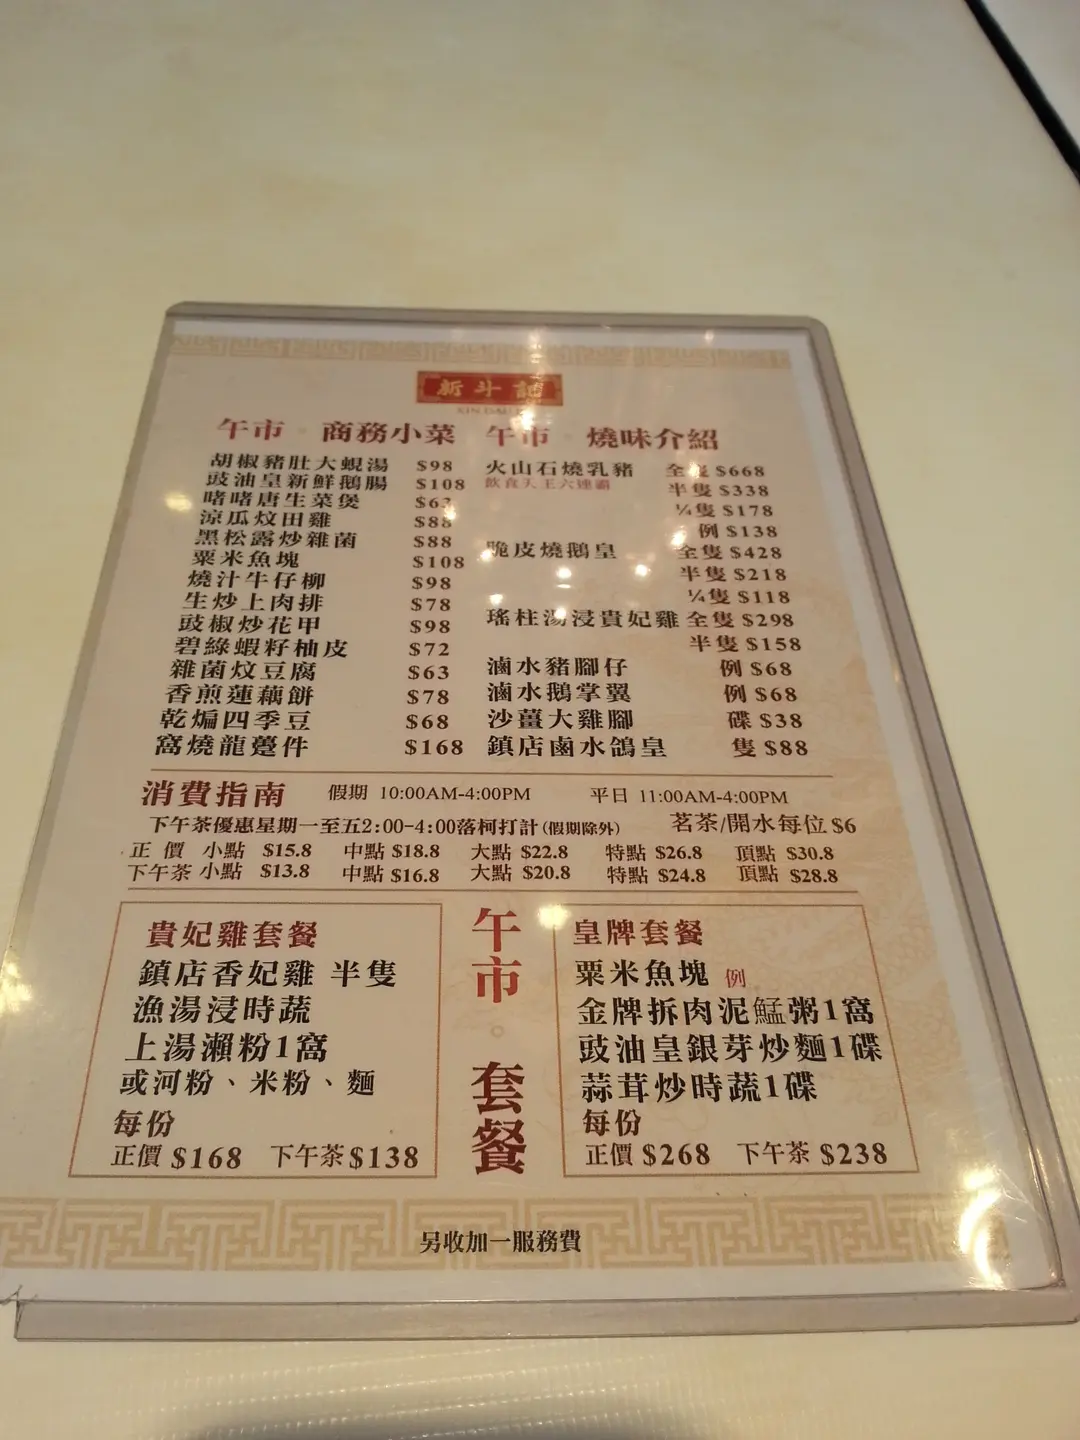 新斗記
午市 商務小菜
胡椒豬肚大蜆湯 $98
豉油皇新鮮鵝腸 $108
啫啫唐生菜煲
涼瓜炆田雞 $88
黑松露炒雜菌 $88
粟米魚塊 $108
燒汁牛仔柳 $98
生炒上肉排 $78
豉椒炒花甲 $98
碧綠蝦籽柚皮 $72
雜菌炆豆腐 $63
香煎蓮藕餅 $78
乾煸四季豆 $68
窩燒龍躉件 $168
午市 燒味介紹
火山石燒乳豬 全隻 $668
飲食天王六連霸 半隻 $338
¼隻 $178
例 $138
脆皮燒鵝皇 全隻 $428
半隻 $218
¼隻 $118
瑤柱湯浸貴妃雞 全隻 $298
半隻 $158
滷水豬腳仔 例 $68
滷水鵝掌翼 例 $68
沙薑大雞腳 碟 $38
鎮店鹵水鴿皇 隻 $88
消費指南 假期 10:00AM-4:00PM 平日 11:00AM-4:00PM
下午茶優惠星期一至五2:00-4:00落柯打計(假期除外) 茗茶/開水每位 $6
正價 小點 $15.8 中點 $18.8 大點 $22.8 特點 $26.8 頂點 $30.8
下午茶 小點 $13.8 中點 $16.8 大點 $20.8 特點 $24.8 頂點 $28.8
貴妃雞套餐
鎮店香妃雞 半隻
漁湯浸時蔬
上湯瀨粉1窩
或河粉、米粉、麵
每份
正價 $168 下午茶 $138
午市。套餐
皇牌套餐
粟米魚塊 例
金牌拆肉泥鯭粥1窩
豉油皇銀芽炒麵1碟
蒜茸炒時蔬1碟
每份
正價 $268 下午茶 $238
另收加一服務費